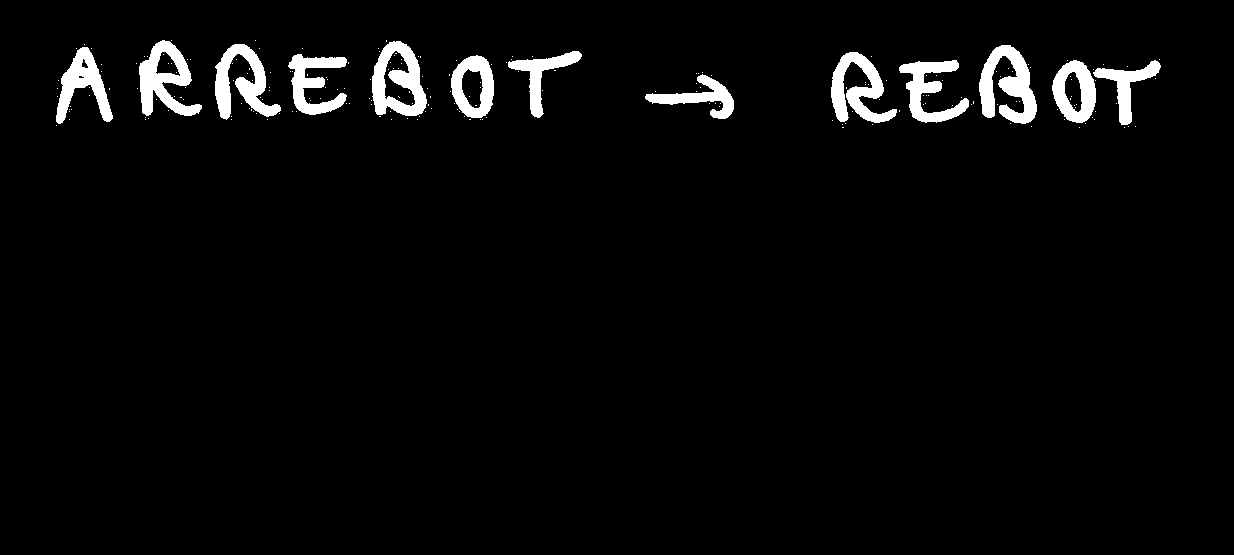 ARREBOT → REBOT